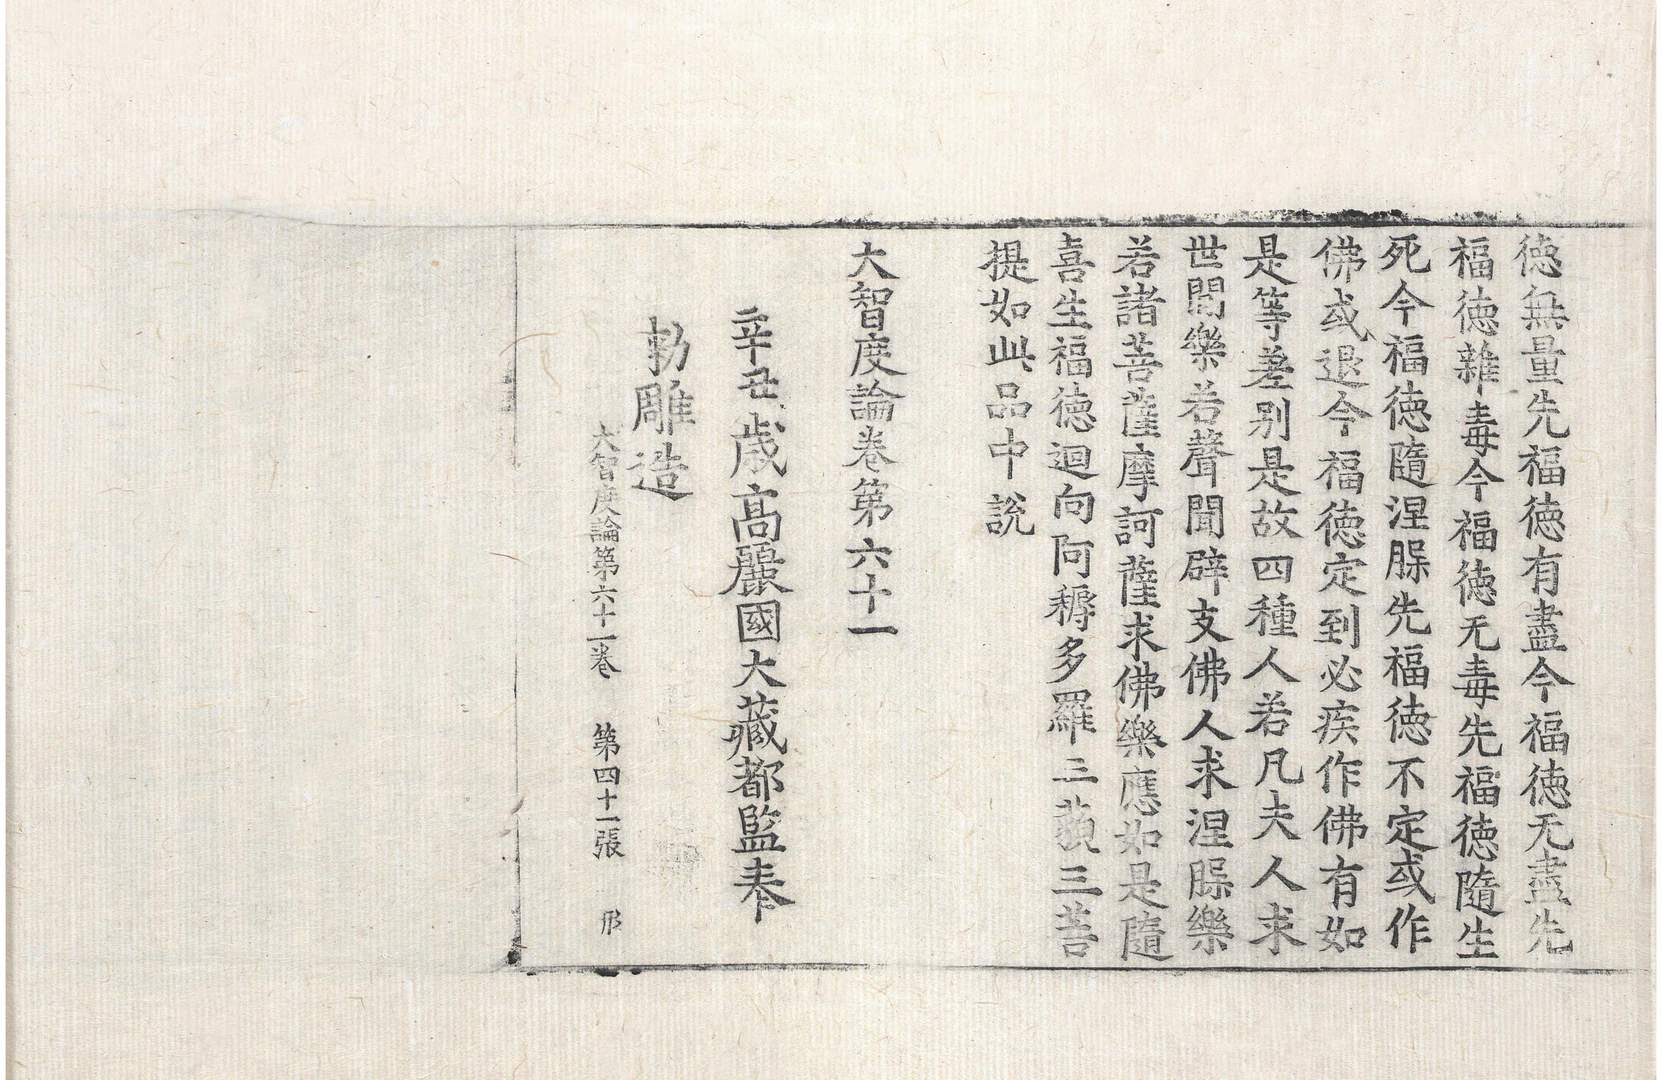 德無量先福德有盡今福德无盡先
福德雜毒今福德无毒先福德隨生
死今福德隨涅槃先福德不定或作
佛或退今福德定到必疾作佛有如
是等差別是故四種人若凡夫人求
世間樂若聲聞辟支佛人求涅槃樂
若諸菩薩摩訶薩求佛樂應如是隨
喜生福德迴向阿耨多羅三藐三菩
提如此品中說
大智度論卷第六十一
辛丑歲高麗國大藏都監奉
勅雕造
大智度論第六十一卷 第四十一張 形